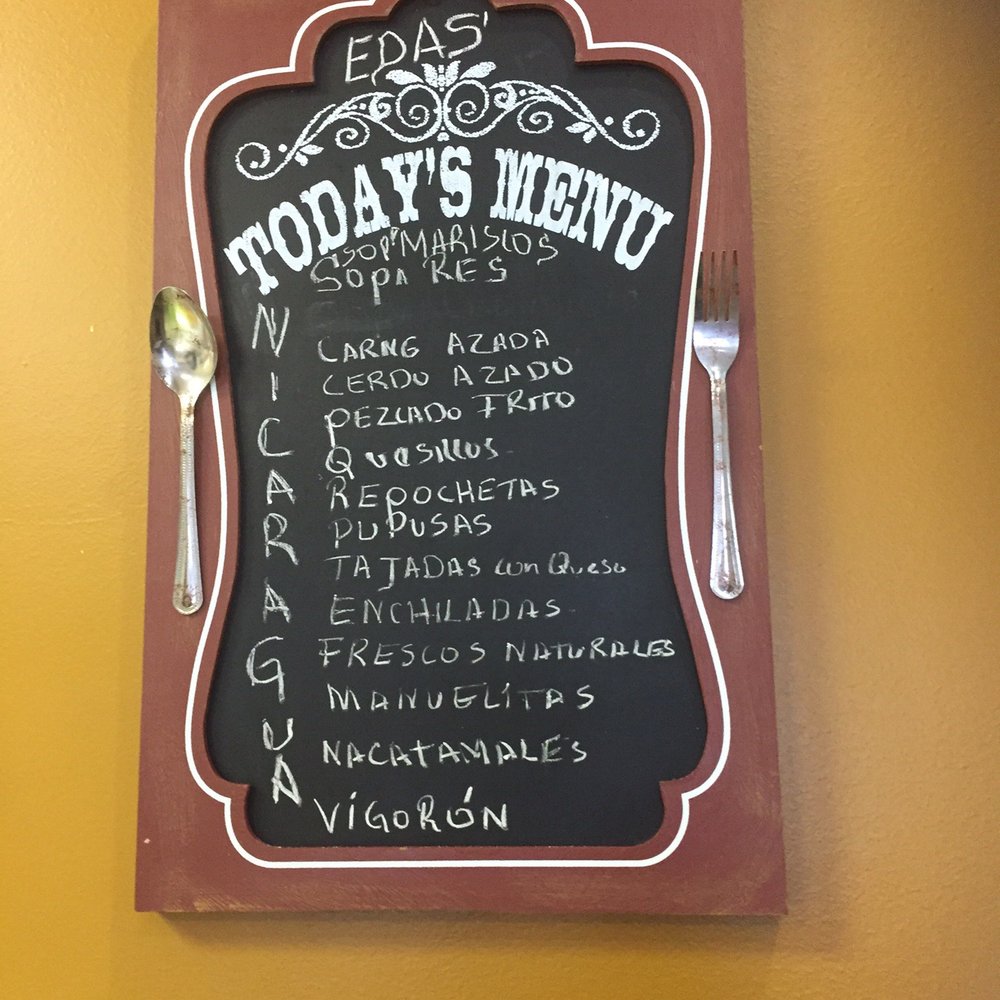 EDAS'
TODAY'S MENU
SOPA MARISCOS
SOPA RES
NICARAGUA
CARNE AZADA
CERDO AZADO
PEZCADO FRITO
QUESILLOS
REPOCHETAS
PUPUSAS
TAJADAS con Queso
ENCHILADAS
FRESCOS NATURALES
MANUELITAS
NACATAMALES
VIGORÓN